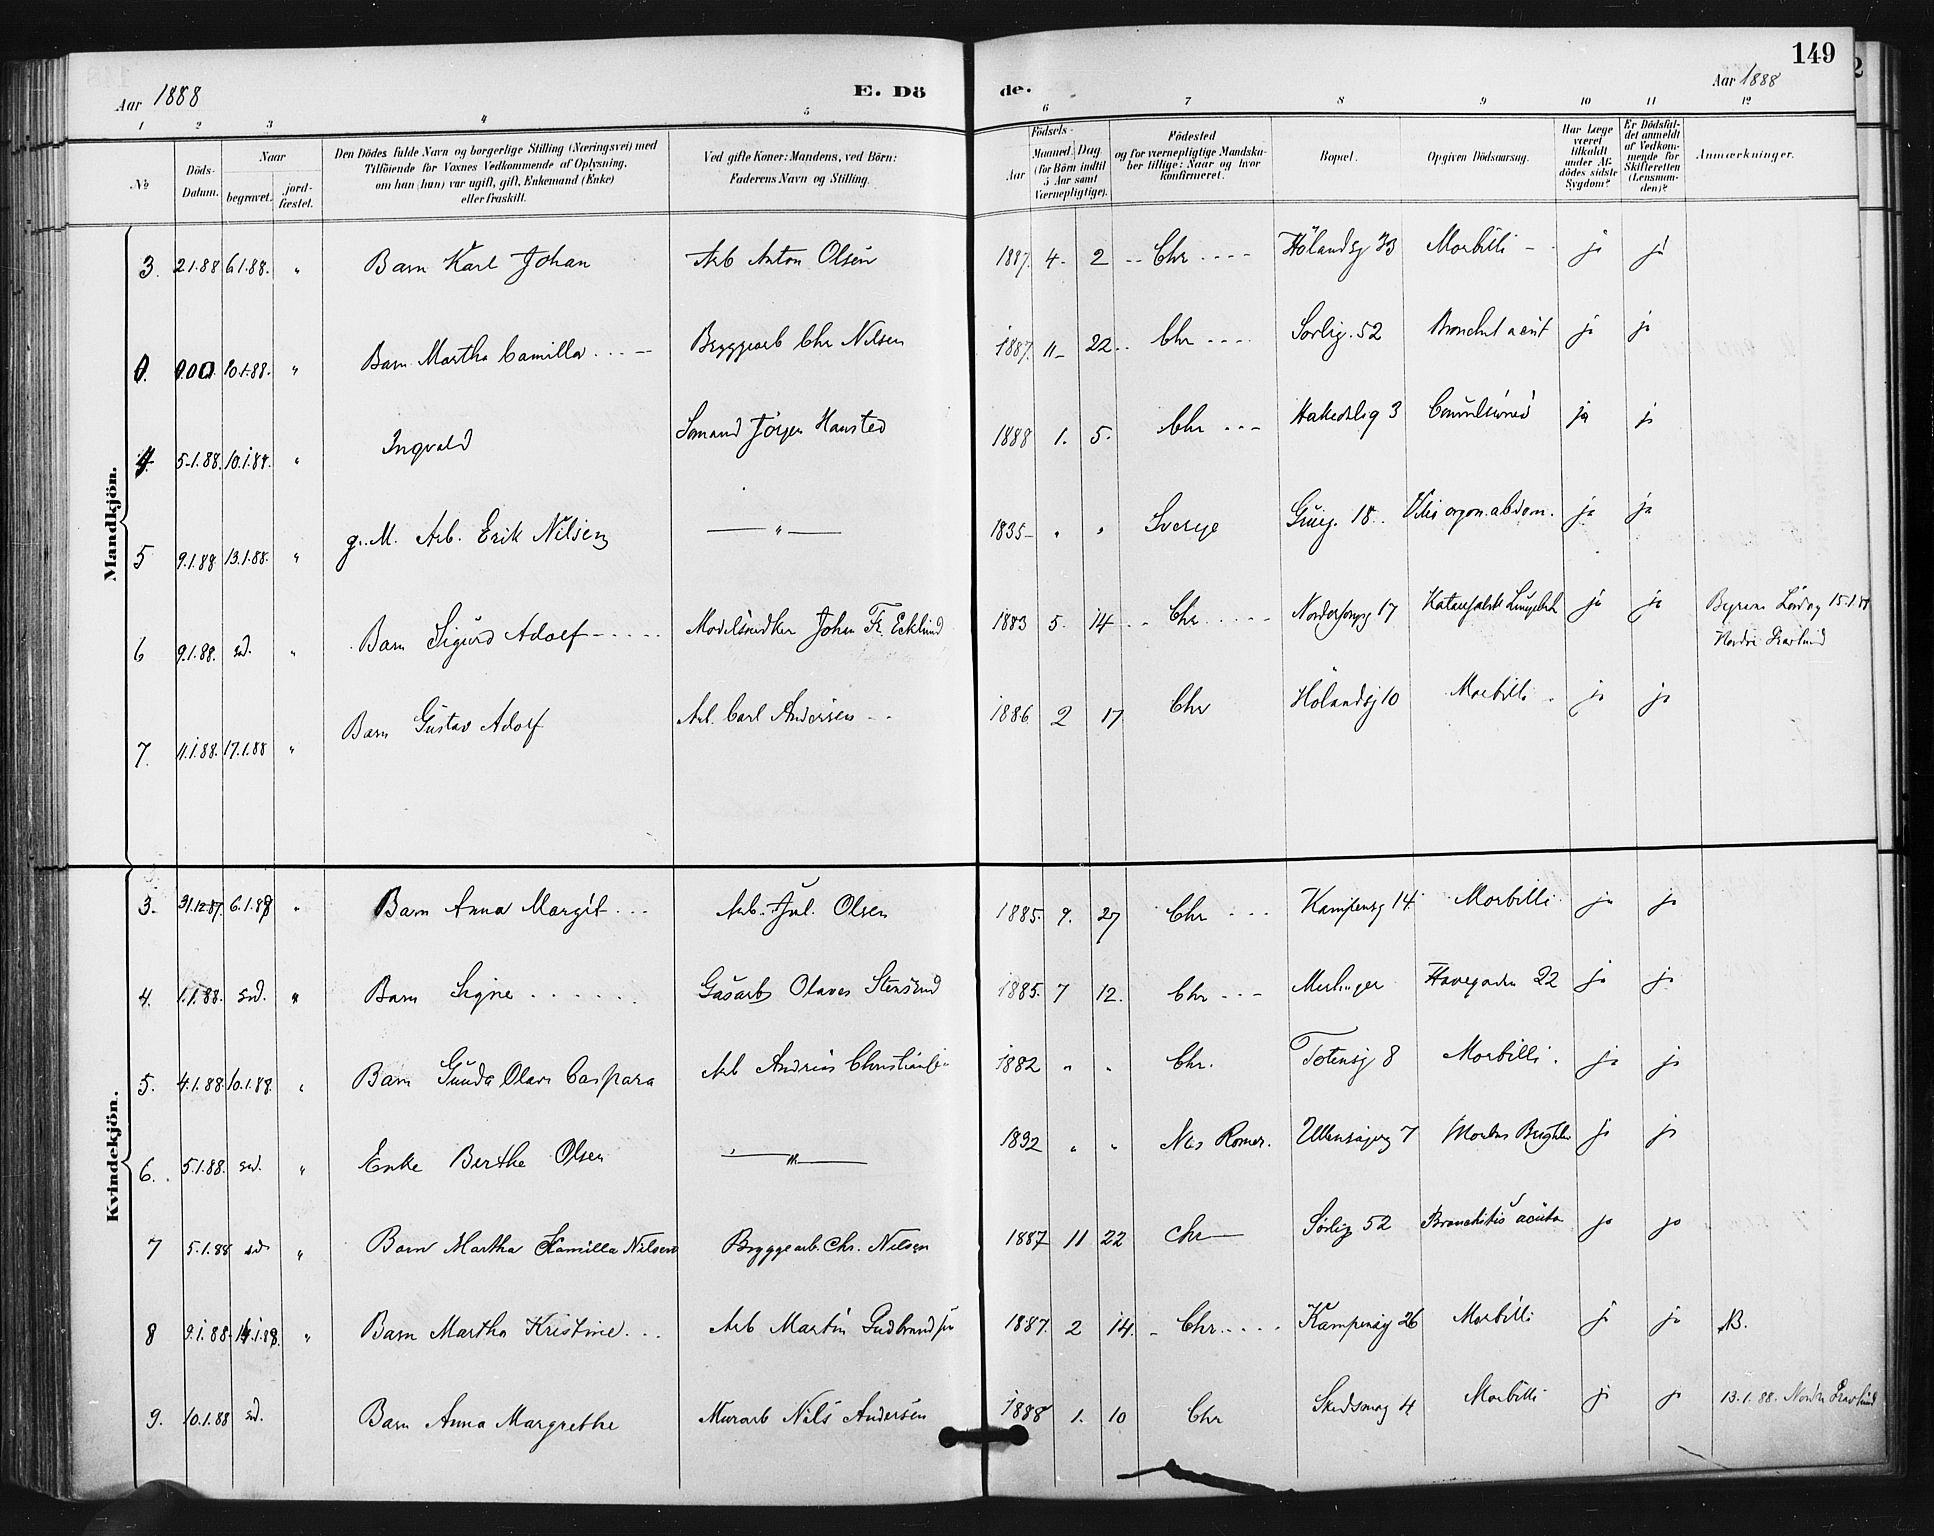 149
Aar 1888 E. Dö de. Aar 1888
1 2 3 4 5 6 7 8 9 10 11 12
No Döds-Datum. Naar begravet. jord-fæstet. Den Dödes fulde Navn og borgerlige Stilling (Næringsvei) med Tilföiende for Voxnes Vedkommende af Oplysning, om han (hun) var ugift, gift, Enkemand (Enke) eller fraskilt. Ved gifte Koner: Mandens, ved Börn: Faderens Navn og Stilling. Födsels- Aar Maaned. Dag (for Börn indtil 5 Aar samt Værnepligtige). Födested og for værnepligtige Mandskaber tillige: Naar og hvor konfirmeret. Bopæl. Opgiven Dödsaarsag. Har Læge været tilkaldt under Afdödes sidste Sygdom? Er Dödsfaldet anmeldt af Vedkommende for Skifteretten (Lensmanden)? Anmærkninger.
Mandkjön.
3. 2.1.88 6.1.88. " Barn Karl Johan Arb Anton Olsen 1887. 4- 2 -- Chr ---- Hölandsg 33 Morbilli - ja ja
10.1.88. " Barn Martha Camilla Bryggearb Chr Nilsen 1887. 11- 22.. Chr .... Sörlig. 52 Bronchit acut ja ja
4 5-1.88. 10.1.88. " Ingvald Sömand Jörgen Hansted 1888 1. 5. Chr --- Hakedslig 3 ja ja
5 9.1.88 13.1.88. " g. M. Arb. Erik Nilsen — " — 1835- " " Sverige Grueg. 18.. Vitii organ. abdom. ja ja
6 9.1.88. sd. " Barn Sigurd Adolf ----- Modelsnedker Johan Fr. Ecklund 1883 5. 14 -- Chr ----- 17 ja ja
Nordre Gravlund
7. 11.1.88. 17.1.88 " Barn Gustav Adolf Arb. Carl Andersen -- 1886 2 17 Chr Hölandsg 10 Morbilli - ja ja
Kvindekjön.
3. 31.12.87. 6.1.88 " Barn Anna Margit ... Arb. Jul. Olsen 1885. 9. 27 Chr --- Kampensg 14 Morbilli. ja ja
4. 1.1.88. sd. " Barn Signe ...... Gasarb Olaves Stensrud 1885. 7 12. Chr --- Havegaden 22 ja ja
5. 4.1.88 10.1.88 " Barn Gunda Olava Caspara Arb Andreas Christiansen 1882 " " Chr. Totensg 8 Morbilli. ja ja
6. 5.1.88. sd. " Enke Berthe Olsen — " — 1832 " " Nes Romer. Ullensagerg 7 Morbus Brightii ja ja
7 5.1.88 sd " Barn Martha Kamilla Nilsen Bryggearb. Chr. Nilsen 1887 11 22 Chr — Sörlig 52 Bronchitis acuta ja ja
8 9.1.88. 14.1.88. " Barn Martha Kristine. .. Arb Martin Gudbrandsen 1887. 2 14. - Chr ..... Kampensg 26 Morbilli ja ja NB.
9. 10.1.88 sd. Barn Anna Margrethe Murarb Nils Andersen 1888 1. 10 Chr Skedsmog 4 Morbilli ja ja 13.1.88. Nordre Gravlund